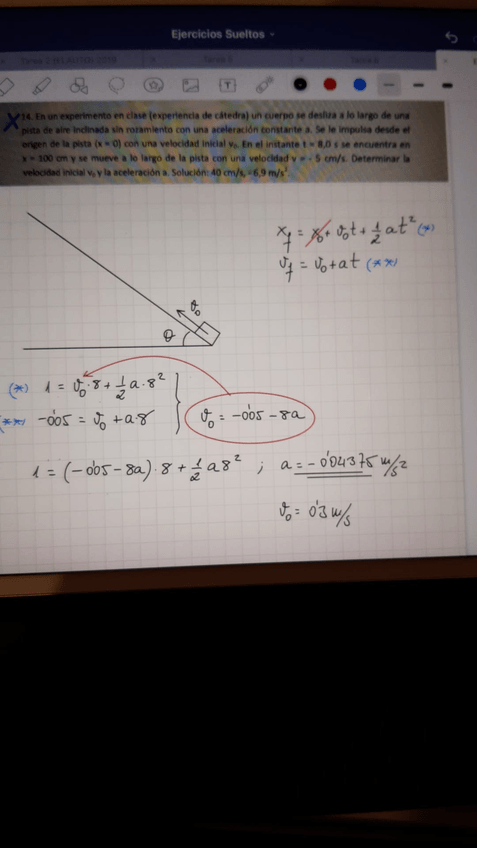 Ejercicios Sueltos
Tarea 5
Tarea 6
14. En un experimento en clase (experiencia de cátedra) un cuerpo se desliza a lo largo de una
pista de aire inclinada sin rozamiento con una aceleración constante a. Se le impulsa desde el
origen de la pista (x = 0) con una velocidad inicial v₀. En el instante t = 8,0 s se encuentra en
x = 100 cm y se mueve a lo largo de la pista con una velocidad v = - 5 cm/s. Determinar la
velocidad inicial v₀ y la aceleración a. Solución: 40 cm/s, - 6,9 m/s².
x_f = x₀ + v₀t + 1/2 at² (*)
v_f = v₀ + at (**)
v₀
θ
(*) 1 = v₀·8 + 1/2 a·8²
(**) -0'05 = v₀ + a·8
v₀ = -0'05 - 8a
1 = (-0'05 - 8a)·8 + 1/2 a8² ; a = -0'04375 m/s²
v₀ = 0'3 m/s